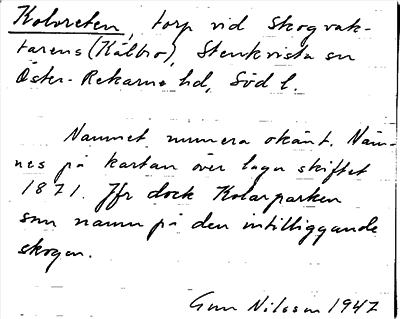 Koloreten, torp vid Skogvak-
tarens (Kälbro), Stenkvista sn
Öster-Rekarne hd, Söd l.
Namnet numera okänt. Näm-
nes på kartan över laga skiftet
1871. Jfr dock Kolarparken
som namn på den intilliggande
skogen.
Gun Nilsson 1947